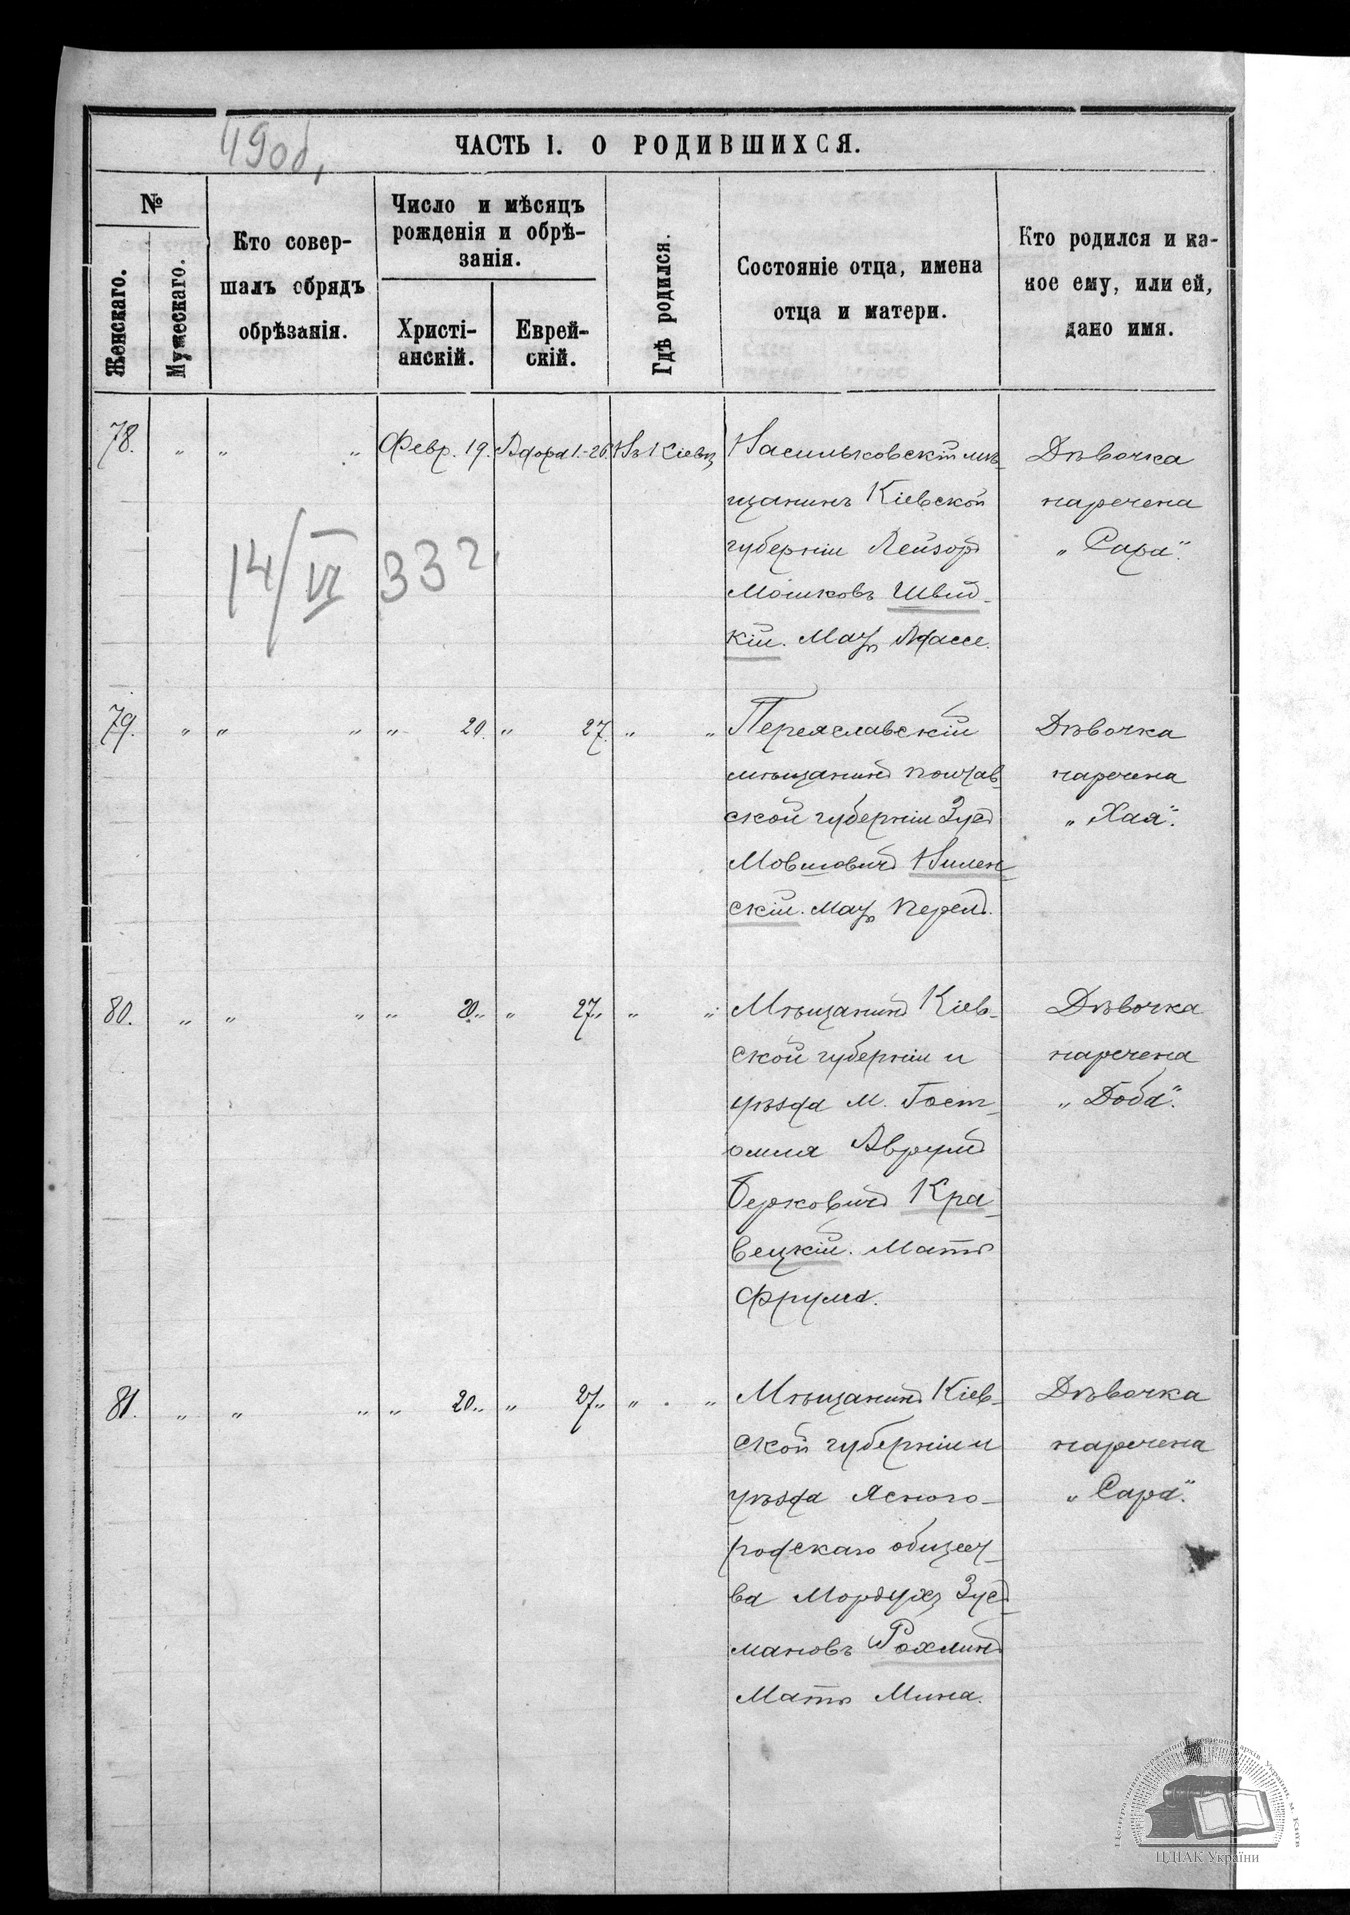 49об,
ЧАСТЬ I. О РОДИВШИХСЯ.
№
Женскаго.
Мужескаго.
Кто совер-
шалъ обрядъ
обрѣзанія.
Число и мѣсяцъ
рожденія и обрѣ-
занія.
Христі-
анскій.
Еврей-
скій.
Гдѣ родился.
Состояніе отца, имена
отца и матери.
Кто родился и ка-
кое ему, или ей,
дано имя.
78. „ „ „ Февр. 19. Адора 1.-26. Въ Кіевѣ
Васильковскій мѣ-
щанинъ Кіевской
губерніи Лейзоръ
Мошковъ Швид-
кій. Мать
Дѣвочка
наречена
„Сара“.
14/VI 33 г.
79. „ „ „ „ 20. „ 27. „ „
Переяславскій
мѣщанинъ Полтав-
ской губерніи Зусь
Мовшовичъ Вилен-
скій. Мать Перель.
Дѣвочка
наречена
„Хая“.
80. „ „ „ „ 20. „ „ 27. „ „ „
Мѣщанинъ Кіев-
ской губерніи и
уѣзда м. Гост-
омля Аврумъ
Берковичъ Кра-
вецкій. Мать
Фрума.
Дѣвочка
наречена
„Доба“.
81. „ „ „ „ 20. „ „ 27. „ „ „
Мѣщанинъ Кіев-
ской губерніи и
уѣзда Ясного-
родскаго общест-
ва Мордухъ Зус-
мановъ Рохлинъ
Мать Мина.
Дѣвочка
наречена
„Сара“.
Центральний державний історичний архів України, м. Київ
ЦДІАК України